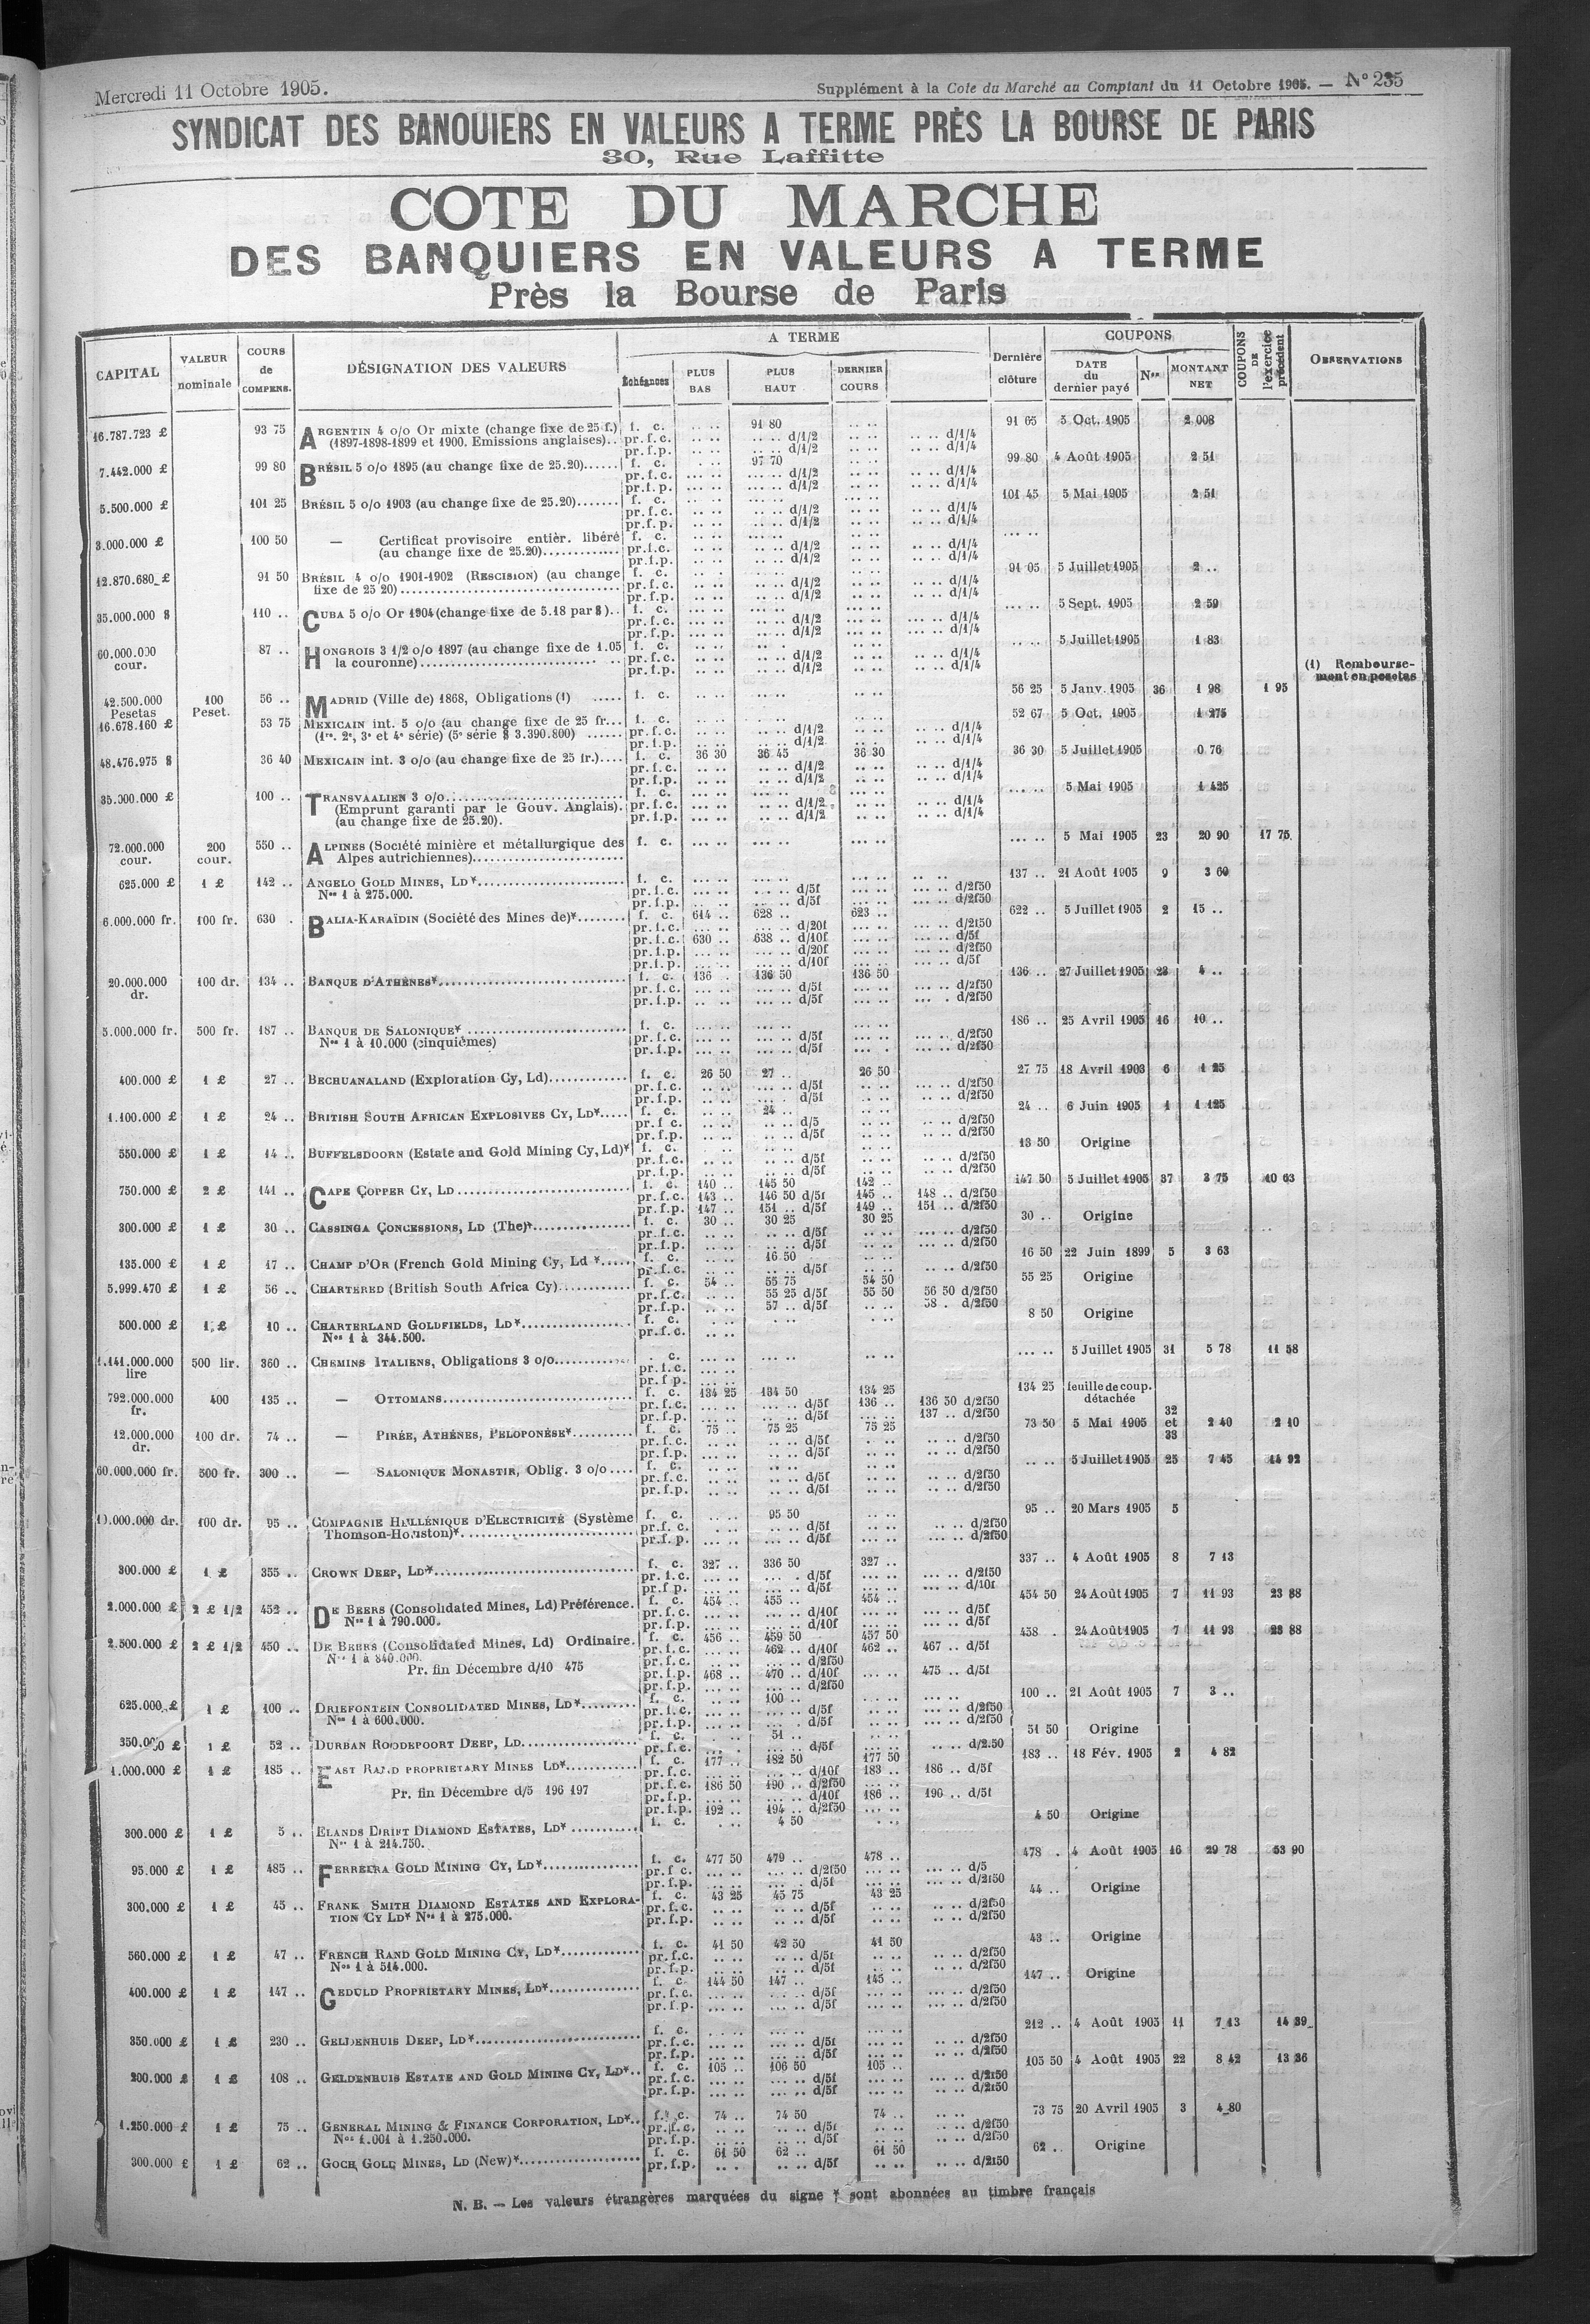 Mercredi 11 Octobre 1905.
Supplément à la Cote du Marché au Comptant du 11 Octobre 1905. — N° 235
SYNDICAT DES BANQUIERS EN VALEURS A TERME PRÈS LA BOURSE DE PARIS
30, Rue Laffitte
COTE DU MARCHE
DES BANQUIERS EN VALEURS A TERME
Près la Bourse de Paris
CAPITAL
VALEUR nominale
COURS de COMPENS.
DÉSIGNATION DES VALEURS
A TERME
Échéances
PLUS BAS
PLUS HAUT
DERNIER COURS
Dernière clôture
COUPONS
DATE du dernier payé
Nos
MONTANT NET
COUPONS DE l'exercice précédent
OBSERVATIONS
16.787.723 £ 93 75 ARGENTIN 4 o/o Or mixte (change fixe de 25 f.) f. c. 91 80 91 65 5 Oct. 1905 2 008
(1897-1898-1899 et 1900. Emissions anglaises).. pr.f.c. d/1/2 d/1/4
pr.f.p. d/1/2 d/1/4
7.442.000 £ 99 80 BRÉSIL 5 o/o 1895 (au change fixe de 25.20)...... f. c. 97 70 99 80 4 Août 1905 2 51
pr.f.c. d/1/2 d/1/4
pr.f.p. d/1/2 d/1/4
5.500.000 £ 101 25 BRÉSIL 5 o/o 1903 (au change fixe de 25.20)....... f. c. 101 45 5 Mai 1905 2 51
pr.f.c. d/1/2 d/1/4
pr.f.p. d/1/2 d/1/4
3.000.000 £ 100 50 — Certificat provisoire entièr. libéré f. c.
(au change fixe de 25.20)............ pr.f.c. d/1/2 d/1/4
pr.f.p. d/1/2 d/1/4
12.870.680 £ 91 50 BRÉSIL 4 o/o 1901-1902 (RESCISION) (au change f. c. 91 05 5 Juillet 1905 2 ..
fixe de 25 20) pr.f.c. d/1/2 d/1/4
pr.f.p. d/1/2 d/1/4
35.000.000 $ 110 .. CUBA 5 o/o Or 1904 (change fixe de 5.18 par $).. f. c. 5 Sept. 1905 2 59
pr.f.c. d/1/2 d/1/4
pr.f.p. d/1/2 d/1/4
60.000.000 cour. 87 .. HONGROIS 3 1/2 o/o 1897 (au change fixe de 1.05 f. c. 5 Juillet 1905 1 83
la couronne) pr.f.c. d/1/2 d/1/4
pr.f.p. d/1/2 d/1/4
(1) Remboursement en pesetas
42.500.000 Pesetas 100 Peset. 56 .. MADRID (Ville de) 1868, Obligations (1) ..... f. c. 56 25 5 Janv. 1905 36 1 98 1 95
16.678.160 £ 53 75 MEXICAIN int. 5 o/o (au change fixe de 25 fr... f. c. 52 67 5 Oct. 1905 1 275
(1re, 2e, 3e et 4e série) (5e série $ 3.390.800) ...... pr.f.c. d/1/2 d/1/4
pr.f.p. d/1/2 d/1/4
48.476.975 $ 36 40 MEXICAIN int. 3 o/o (au change fixe de 25 fr.).... f. c. 36 30 36 45 36 30 36 30 5 Juillet 1905 0 76
pr.f.c. d/1/2 d/1/4
pr.f.p. d/1/2 d/1/4
35.000.000 £ 100 .. TRANSVAALIEN 3 o/o f. c. 5 Mai 1905 1 425
(Emprunt garanti par le Gouv. Anglais). pr.f.c. d/1/2 d/1/4
(au change fixe de 25.20). pr.f.p. d/1/2 d/1/4
72.000.000 cour. 200 cour. 550 .. ALPINES (Société minière et métallurgique des f. c. 5 Mai 1905 23 20 90 17 75
Alpes autrichiennes)
625.000 £ 1 £ 142 .. ANGELO GOLD MINES, LD* f. c. 137 .. 21 Août 1905 9 3 60
Nos 1 à 275.000. pr.f.c. d/5f d/2f50
pr.f.p. d/5f d/2f50
6.000.000 fr. 100 fr. 630 . BALIA-KARAÏDIN (Société des Mines de)* f. c. 614 .. 628 .. 623 .. 622 .. 5 Juillet 1905 2 15 ..
pr.f.c. d/20f d/2f50
pr.f.c. 630 .. 638 .. d/10f d/5f
pr.f.p. d/20f d/2f50
pr.f.p. d/10f d/5f
20.000.000 dr. 100 dr. 134 .. BANQUE D'ATHÈNES* f. c. 136 136 50 136 50 136 .. 27 Juillet 1905 23 4 ..
pr.f.c. d/5f d/2f50
pr.f.p. d/5f d/2f50
5.000.000 fr. 500 fr. 187 .. BANQUE DE SALONIQUE* f. c. 186 .. 25 Avril 1905 16 10 ..
Nos 1 à 10.000 (cinquièmes) pr.f.c. d/5f d/2f50
pr.f.p. d/5f d/2f50
400.000 £ 1 £ 27 .. BECHUANALAND (Exploration Cy, Ld) f. c. 26 50 27 .. 26 50 27 75 18 Avril 1903 6 1 25
pr.f.c. d/5f d/2f50
pr.f.p. d/5f d/2f50
1.100.000 £ 1 £ 24 .. BRITISH SOUTH AFRICAN EXPLOSIVES CY, LD* f. c. 24 .. 24 .. 6 Juin 1905 1 1 125
pr.f c. d/5 d/2f50
pr.f.p. d/5f d/2f50
550.000 £ 1 £ 14 .. BUFFELSDOORN (Estate and Gold Mining Cy, Ld)* f. c. 13 50 Origine
pr.f.c. d/5f d/2f50
pr.f.p. d/5f d/2f50
750.000 £ 2 £ 141 .. CAPE COPPER CY, LD f. c. 140 .. 145 50 142 .. 147 50 5 Juillet 1905 37 3 75 10 63
pr.f.c. 143 .. 146 50 d/5f 145 .. 148 .. d/2f50
pr.f.p. 147 .. 151 .. d/5f 149 .. 151 .. d/2f50
300.000 £ 1 £ 30 .. CASSINGA CONCESSIONS, LD (The)* f. c. 30 .. 30 25 30 25 30 .. Origine
pr.f.c. d/5f d/2f50
pr.f.p. d/5f d/2f50
135.000 £ 1 £ 17 .. CHAMP D'OR (French Gold Mining Cy, Ld * f. c. 16 50 16 50 22 Juin 1899 5 3 63
pr.f.c. d/5f d/2f50
5.999.470 £ 1 £ 56 .. CHARTERED (British South Africa Cy) f. c. 54 .. 55 75 54 50 55 25 Origine
pr.f.c. 55 25 d/5f 55 50 56 50 d/2f50
pr.f.p. 57 .. d/5f 58 . d/2f50
500.000 £ 1 £ 10 .. CHARTERLAND GOLDFIELDS, LD* f. c. 8 50 Origine
Nos 1 à 344.500. pr.f.c.
1.141.000.000 lire 500 lir. 360 .. CHEMINS ITALIENS, Obligations 3 o/o . c. 5 Juillet 1905 31 5 78 11 58
pr.f.c.
pr.f p.
792.000.000 fr. 400 135 .. — OTTOMANS f. c. 134 25 134 50 134 25 134 25 feuille de coup. détachée
pr.f.c. d/5f 136 .. 136 50 d/2f50
pr.f.p. d/5f 137 .. d/2f50
12.000.000 dr. 100 dr. 74 .. — PIRÉE, ATHÈNES, PELOPONÈSE* f. c. 75 .. 75 25 75 25 73 50 5 Mai 1905 32 et 33 2 40 2 10
pr.f.c. d/5f d/2f50
pr.f.p. d/5f d/2f50
60.000.000 fr. 500 fr. 300 .. — SALONIQUE MONASTIR, Oblig. 3 o/o f. c. 5 Juillet 1905 25 7 45 14 92
pr.f.c. d/5f d/2f50
pr.f.p. d/5f d/2f50
10.000.000 dr. 100 dr. 95 .. COMPAGNIE HELLÉNIQUE D'ELECTRICITÉ (Système f. c. 95 50 95 .. 20 Mars 1905 5
Thomson-Houston)* pr.f. c. d/5f d/2f50
pr.f. p. d/5f d/2f50
300.000 £ 1 £ 355 .. CROWN DEEP, LD* f. c. 327 .. 336 50 327 .. 337 .. 4 Août 1905 8 7 13
pr.f.c. d/5f d/2f50
pr.f p. d/5f d/10f
2.000.000 £ 2 £ 1/2 452 .. DE BEERS (Consolidated Mines, Ld) Préférence. f. c. 454 .. 455 .. 454 .. 454 50 24 Août 1905 7 11 93 23 88
Nos 1 à 790.000. pr.f.c. d/10f d/5f
pr.f.p. d/10f d/5f
2.500.000 £ 2 £ 1/2 450 .. DE BEERS (Consolidated Mines, Ld) Ordinaire. f. c. 456 .. 459 50 457 50 458 .. 24 Août 1905 7 11 93 23 88
Nos 1 à 840.000. pr.f.c. 462 .. d/10f 462 .. 467 .. d/5f
pr.f.c. d/2f50
Pr. fin Décembre d/10 475 pr.f.p. 468 .. 470 .. d/10f 475 .. d/5f
pr.f.p. d/2f50
625.000 £ 1 £ 100 .. DRIEFONTEIN CONSOLIDATED MINES, LD* f. c. 100 .. 100 .. 21 Août 1905 7 3 ..
Nos 1 à 600.000. pr.f.c. d/5f d/2f50
pr.f.p. d/5f d/2f50
350.000 £ 1 £ 52 .. DURBAN ROODEPOORT DEEP, LD f. c. 51 .. 51 50 Origine
pr.f.c. d/5f d/2.50
1.000.000 £ 1 £ 185 .. EAST RAND PROPRIETARY MINES LD* f. c. 177 .. 182 50 177 50 183 .. 18 Fév. 1905 2 4 82
pr.f.c. d/10f 183 .. 186 .. d/5f
Pr. fin Décembre d/5 196 197 pr.f.c. 186 50 190 .. d/2f50
pr.f.p. d/10f 186 .. 190 .. d/5f
pr.f.p. 192 .. 194 .. d/2f50
300.000 £ 1 £ 5 .. ELANDS DRIFT DIAMOND ESTATES, LD* f. c. 4 50 4 50 Origine
Nos 1 à 214.750.
95.000 £ 1 £ 485 .. FERREIRA GOLD MINING CY, LD* f. c. 477 50 479 .. 478 .. 478 . 4 Août 1905 16 29 78 53 90
pr.f c. d/2f50 d/5
pr.f.p. d/5f d/2f50
300.000 £ 1 £ 45 .. FRANK SMITH DIAMOND ESTATES AND EXPLORA- f. c. 43 25 45 75 43 25 44 .. Origine
TION CY LD* Nos 1 à 275.000. pr.f.c. d/5f d/2f50
pr.f.p. d/5f d/2f50
560.000 £ 1 £ 47 .. FRENCH RAND GOLD MINING CY, LD* f. c. 41 50 42 50 41 50 43 .. Origine
Nos 1 à 514.000. pr.f.c. d/5f d/2f50
pr.f.p. d/5f d/2f50
400.000 £ 1 £ 147 .. GEDULD PROPRIETARY MINES, LD* f. c. 144 50 147 .. 145 .. 147 .. Origine
pr.f.c. d/5f d/2f50
pr.f.p. d/5f d/2f50
350.000 £ 1 £ 230 .. GELDENHUIS DEEP, LD* f. c. 212 .. 4 Août 1905 11 7 13 14 39
pr.f.c. d/5f d/2f50
pr.f.p. d/5f d/2f50
200.000 £ 1 £ 108 .. GELDENHUIS ESTATE AND GOLD MINING CY, LD* f. c. 105 .. 106 50 105 .. 105 50 4 Août 1905 22 8 42 13 36
pr.f.c. d/5f d/2f50
pr.f.p. d/5f d/2f50
1.250.000 £ 1 £ 75 .. GENERAL MINING & FINANCE CORPORATION, LD* f. c. 74 .. 74 50 74 .. 73 75 20 Avril 1905 3 4 80
Nos 1.001 à 1.250.000. pr.f.c. d/5f d/2f50
pr.f.p. d/5f d/2f50
300.000 £ 1 £ 62 .. GOCH GOLD MINES, LD (New)* f. c. 61 50 62 .. 61 50 62 .. Origine
pr.f.p. d/5f d/2f50
N. B. — Les valeurs étrangères marquées du signe * sont abonnées au timbre français